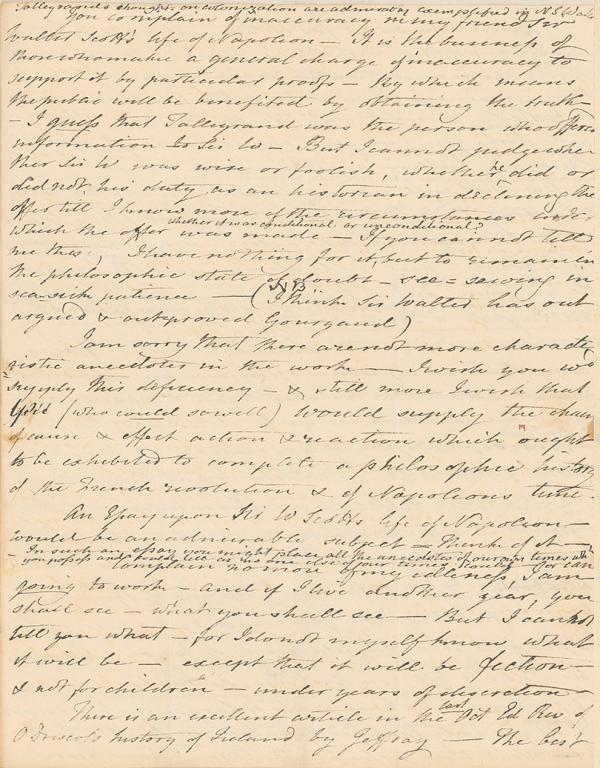 Talleyrand's thoughts on colonization are admirably exemplified in N S Wales
You complain of inaccuracy in my friend Sir
Walter Scott's life of Napoleon — It is the business of
those who make a general charge of inaccuracy to
support it by particular proofs — By which means
the public will be benefited by obtaining the truth —
— I guess that Talleyrand was the person who offered
information to Sir W — But I cannot judge whe-
ther Sir W was wise or foolish, whether he did or
did not his duty as an historian in declining the
offer till I know more of the circumstances under
whether it was conditional or unconditional?
which the offer was made — If you cannot tell
me this, I have nothing for it, but to remain in
the philosophic state of doubt — see = sawing in
sea-sick patience — (NB I think Sir Walter has out
argued & outproved Gourgaud)
I am sorry that there are not more characte
ristic anecdotes in the work — I wish you wd
supply this deficiency — & still more I wish that
you (who could so well) would supply the chain
of cause & effect action & reaction which ought
to be exhibited to complete a philosophic history
of the French revolution & of Napoleons time.
An Essay upon Sir W Scotts life of Napoleon —
would be an admirable subject — Think of it —
— In such an essay you might place all the anecdotes of our own times which
you possess and could tell as no one else of your times could — for can
Complain no more of my idleness, I am
going to work — and if I live another year, you
shall see — what you shall see — But I cannot
tell you what — for I do not myself know what
it will be — except that it will be fiction —
& not for children — under years of discretion —
There is an excellent article in the last Oct Ed Rev of
O Driscol's history of Ireland by Jeffray — The best